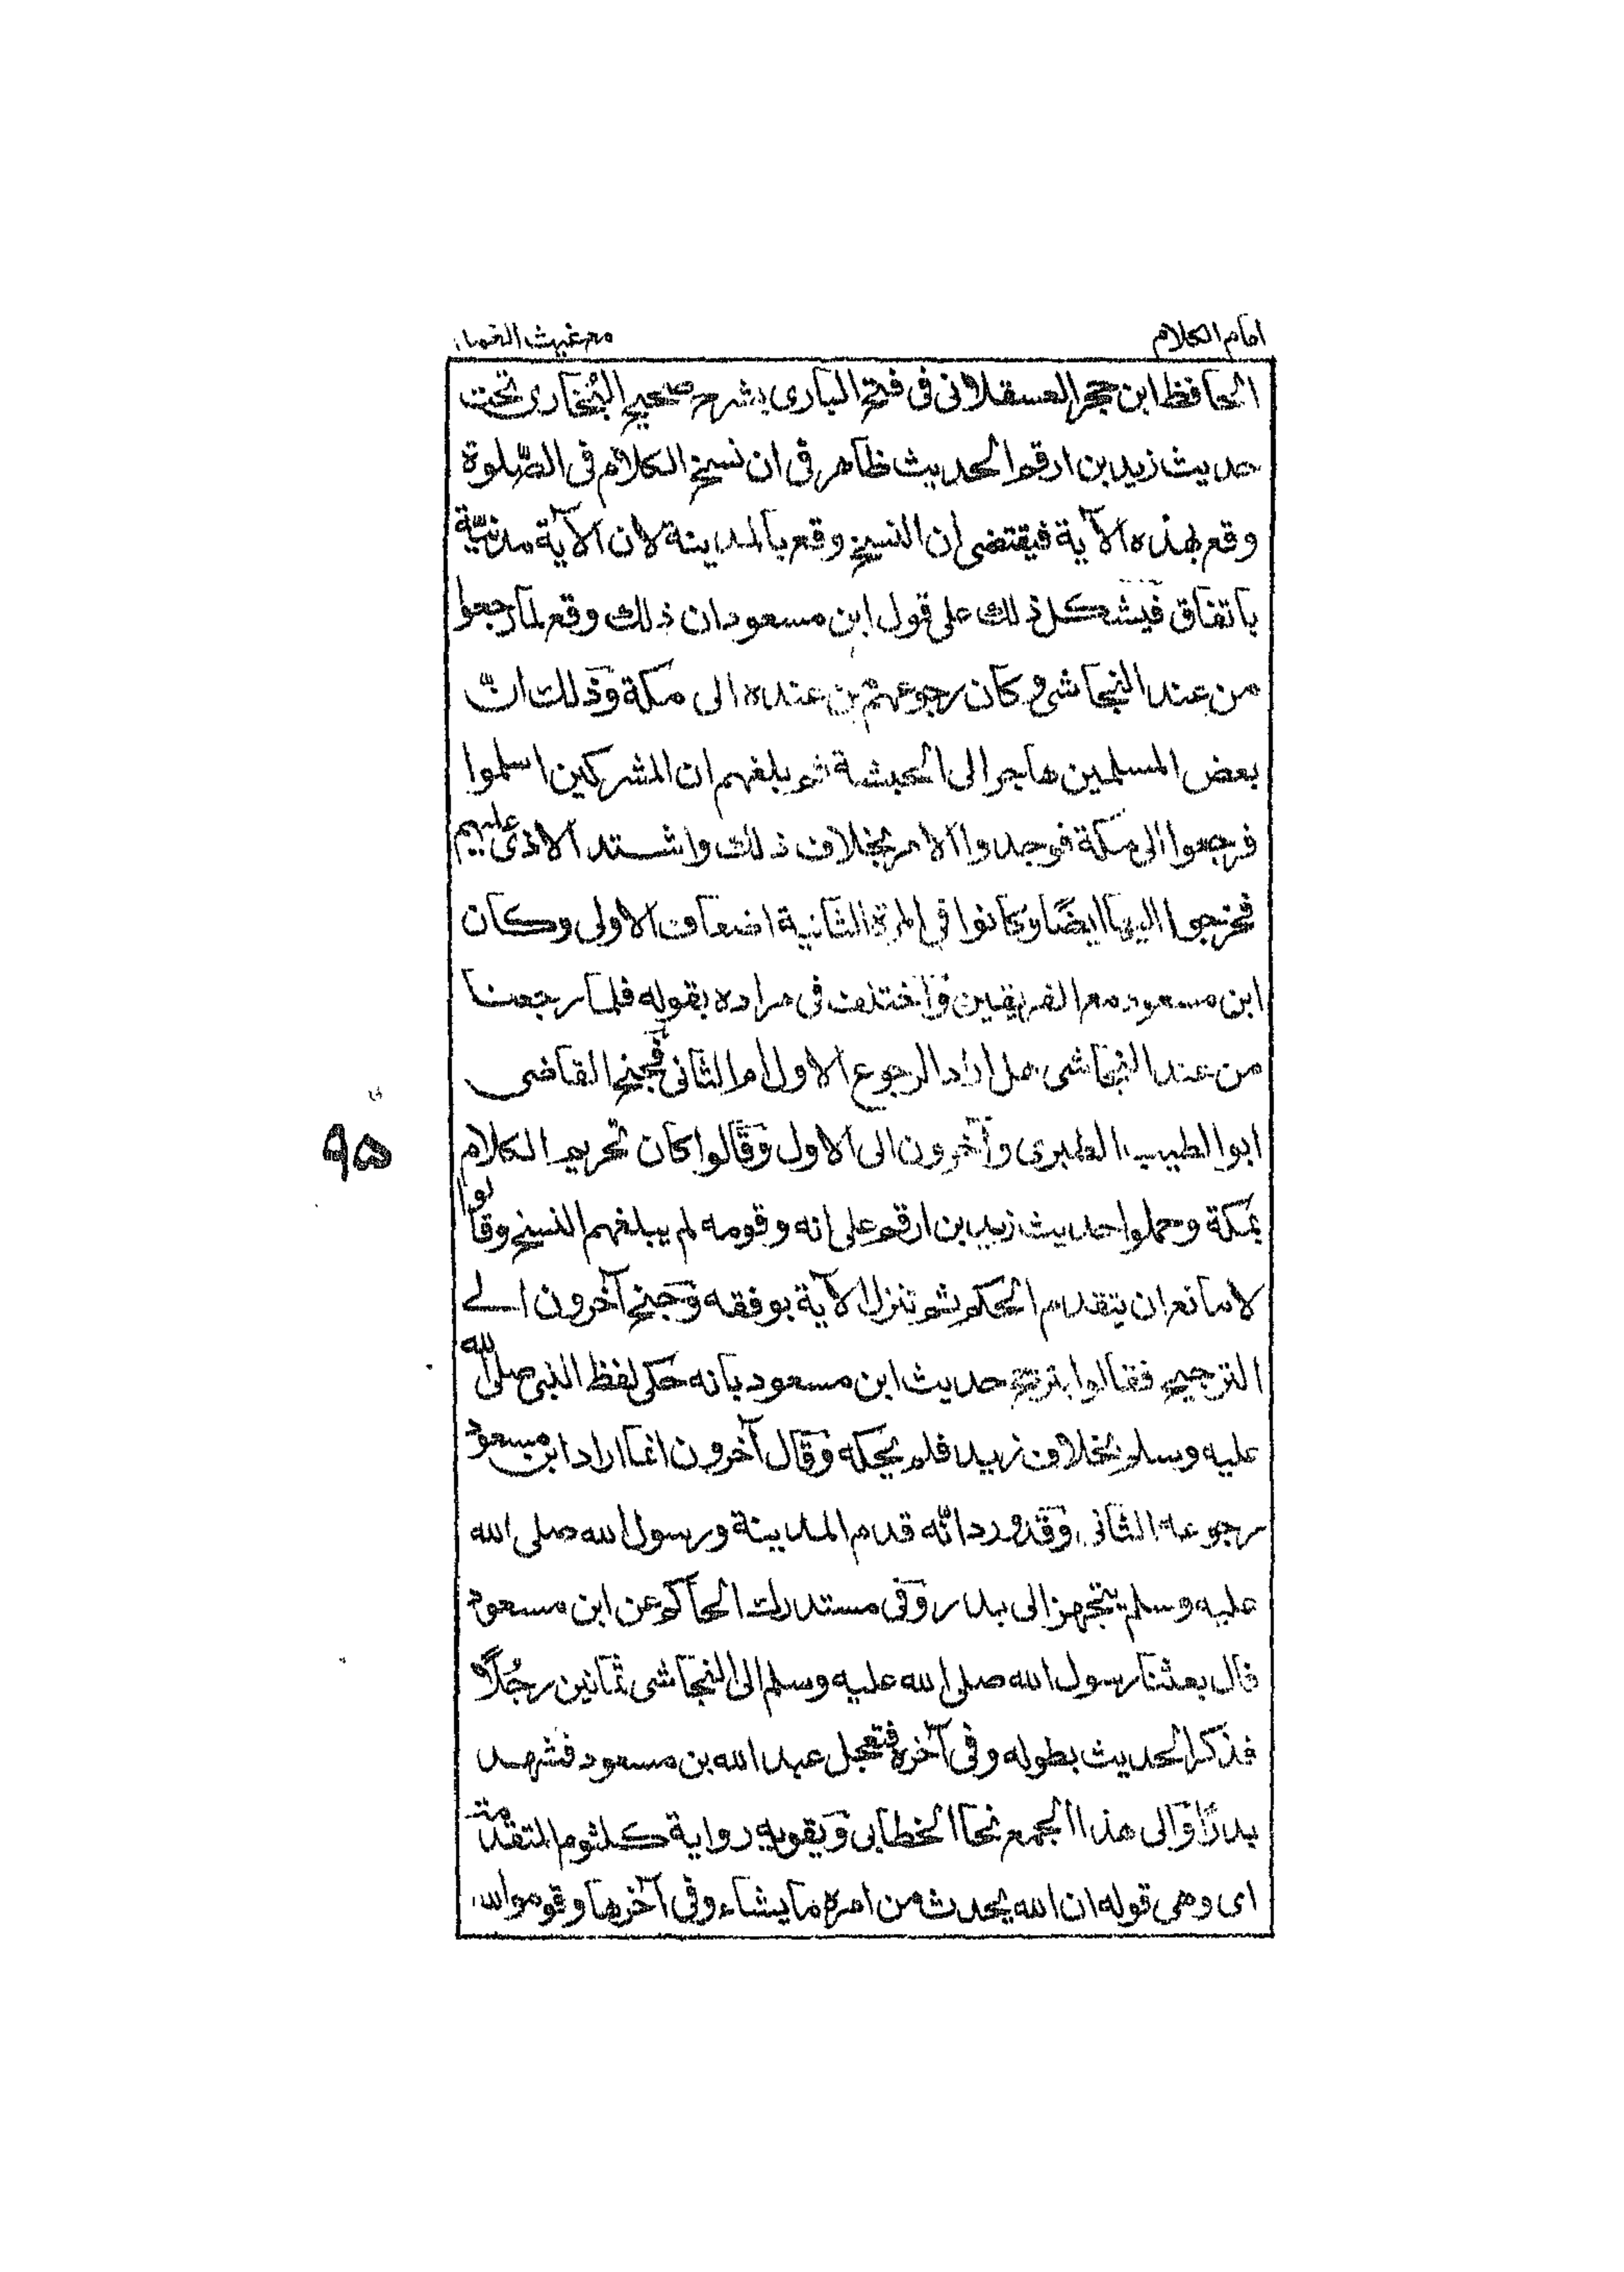 امام الكلام
مع غيث الغمام
الحافظ ابن حجر العسقلانى فى فتح البارى بشرح صحيح البخارى تحت
حديث زيد بن ارقم الحديث ظاهر فى ان نسخ الكلام فى الصلوة
وقع بهذه الآية فيقتضى ان النسخ وقع بالمدينة لان الآية مدنيّة
باتفاق فيشكل ذلك على قول ابن مسعود ان ذلك وقع لما رجعوا
من عند النجاشى وكان رجوعهم من عنده الى مكة وذلك انّ
بعض المسلمين هاجر الى الحبشة ثم بلغهم ان المشركين اسلموا
فرجعوا الى مكة فوجدوا الامر بخلاف ذلك واشتد الاذى عليهم
فخرجوا اليها ايضًا وكانوا فى المرة الثانية اضعاف الاولى وكان
ابن مسعود مع الفريقين واختلف فى مراده بقوله فلما رجعنا
من عند النجاشى هل اراد الرجوع الاول ام الثانى فجنح القاضى
ابو الطيب الطبرى وآخرون الى الاول وقالوا كان تحريم الكلام
بمكة وحملوا حديث زيد بن ارقم على انه وقومه لم يبلغهم النسخ وقالوا
لا مانع ان يتقدم الحكم ثم تنزل الآية بوفقه وجنح آخرون الى
الترجيح فقالوا بترجح حديث ابن مسعود بانه حكى لفظ النبى صلى الله
عليه وسلم بخلاف زيد فلم يحكه وقال آخرون انما اراد ابن مسعود
رجوعه الثانى وقد ورد انّه قدم المدينة ورسول الله صلى الله
عليه وسلم يتجهز الى بدر وفى مستدرك الحاكم عن ابن مسعود
قال بعثنا رسول الله صلى الله عليه وسلم الى النجاشى ثمانين رجُلًا
فذكر الحديث بطوله وفى آخره فتعجل عبد الله بن مسعود فشهد
بدرًا والى هذا الجمع نحا الخطابى ويقويه رواية كلثوم المتقدمة
اى وهى قوله ان الله يحدث من امره ما يشاء وفى آخرها وقوموا لله
٩٥